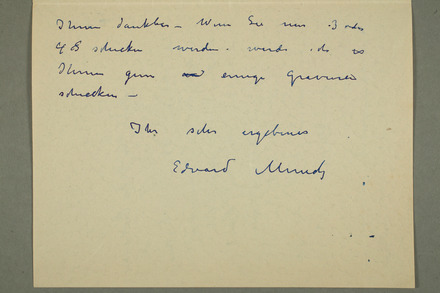 Ihnen dankbar – Wenn Sie mir 3 oder
4 schicken werden, werde ich es
Ihnen gern einige Gravuren
schicken –
Ihr sehr ergebener
Edvard Munch